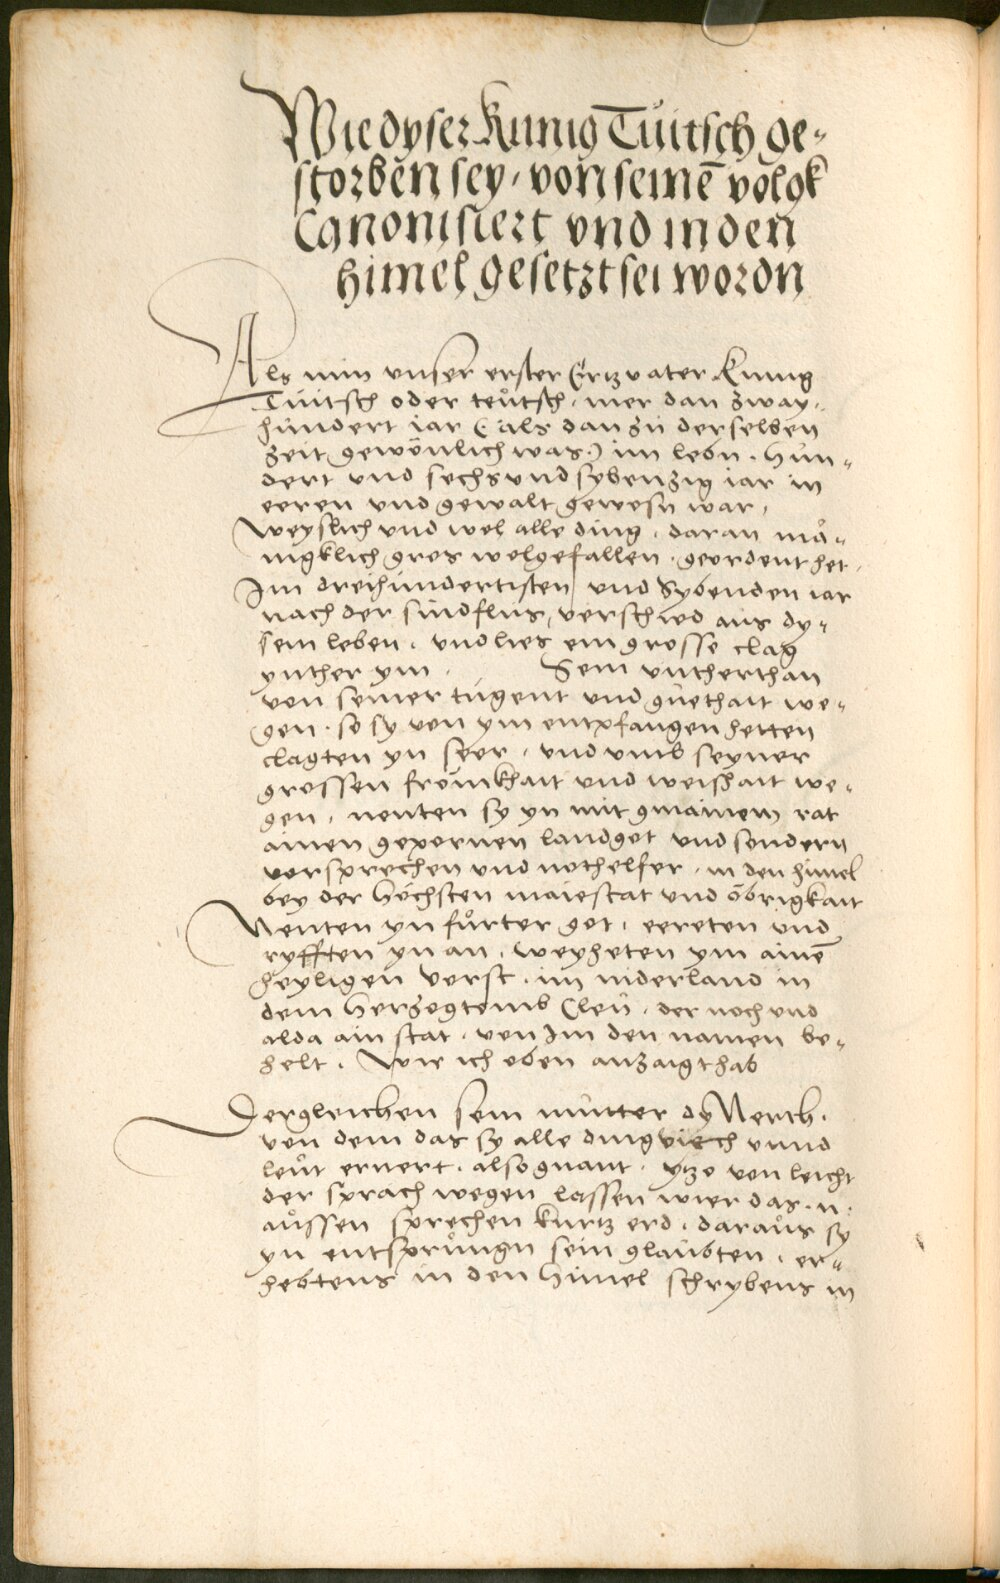 Wie dyser Kunig Tuitsch ge-
storben sey, von seinē volgk
Canonisiert vnd in den
himel gesetzt sei wordn
Als nun vnser erster Ertzvater Kunig
Tuitsch oder teůtsch, mer dan zway-
hundert iar (als dan zů derselben
zeit gewönlich was) im lebn. Hun-
dert vnd sechs vnd sybenzig iar in
eeren vnd gewalt gewesn war,
weyslich vnd wol alle ding, daran må-
nigklich gros wolgefallen, geordent het.
Im dreihundertisten vnd Sybenden iar
nach der sindflus, verschid aus dy-
sem leben, vnd lies ein grosse clag
ynther ym. Sein vntherthan
von seiner tugent vnd guethait we-
gen, so sy von ym entpfangen hetten
clagten yn seer, vnd vmb seyner
grossen frömkhait vnd weishait we-
gen, nenten sy yn mit gmainem rat
ainen gepornen landgot vnd sondern
vorsprechen vnd nothelfer, in den himel
bey der höchsten maiestat vnd öbrigkait
Nenten yn fůrter got, eereten vnd
ryfften yn an, weyheten ym ainē
heyligen vorst, im niderland in
dem Herzogtomb Cleu, der noch vnd
alda ain stat, von Im den namen be-
helt. Wie ich oben anzaigt hab
Dergleichen sein mutter dy Nerth,
von dem das sy alle ding viech vnnd
leůt ernert, also gnant, ytzo von leicht
der sprach wegen lassen wier das .n.
aůssen sprechen kurtz erd, daraůs sy
yn entsprůngn sein glaubten, er-
hebtens in den himel schrybens in